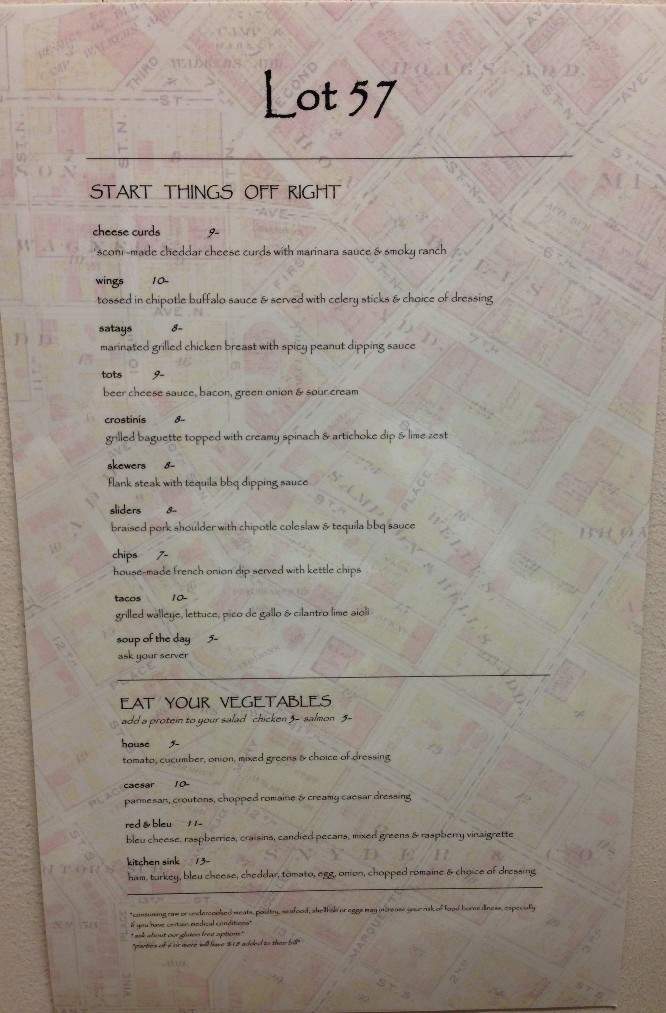 Lot 57
START THINGS OFF RIGHT
cheese curds 9-
'sconi-made cheddar cheese curds with marinara sauce & smoky ranch
wings 10-
tossed in chipotle buffalo sauce & served with celery sticks & choice of dressing
satays 8-
marinated grilled chicken breast with spicy peanut dipping sauce
tots 9-
beer cheese sauce, bacon, green onion & sour cream
crostinis 8-
grilled baguette topped with creamy spinach & artichoke dip & lime zest
skewers 8-
flank steak with tequila bbq dipping sauce
sliders 8-
braised pork shoulder with chipotle coleslaw & tequila bbq sauce
chips 7-
house-made french onion dip served with kettle chips
tacos 10-
grilled walleye, lettuce, pico de gallo & cilantro lime aioli
soup of the day 5-
ask your server
EAT YOUR VEGETABLES
add a protein to your salad chicken 3- salmon 5-
house 5-
tomato, cucumber, onion, mixed greens & choice of dressing
caesar 10-
parmesan, croutons, chopped romaine & creamy caesar dressing
red & bleu 11-
bleu cheese, raspberries, craisins, candied pecans, mixed greens & raspberry vinaigrette
kitchen sink 13-
ham, turkey, bleu cheese, cheddar, tomato, egg, onion, chopped romaine & choice of dressing
*consuming raw or undercooked meats, poultry, seafood, shellfish or eggs may increase your risk of food borne illness, especially
if you have certain medical conditions*
*ask about our gluten free options*
*parties of 6 or more will have $18 added to their bill*